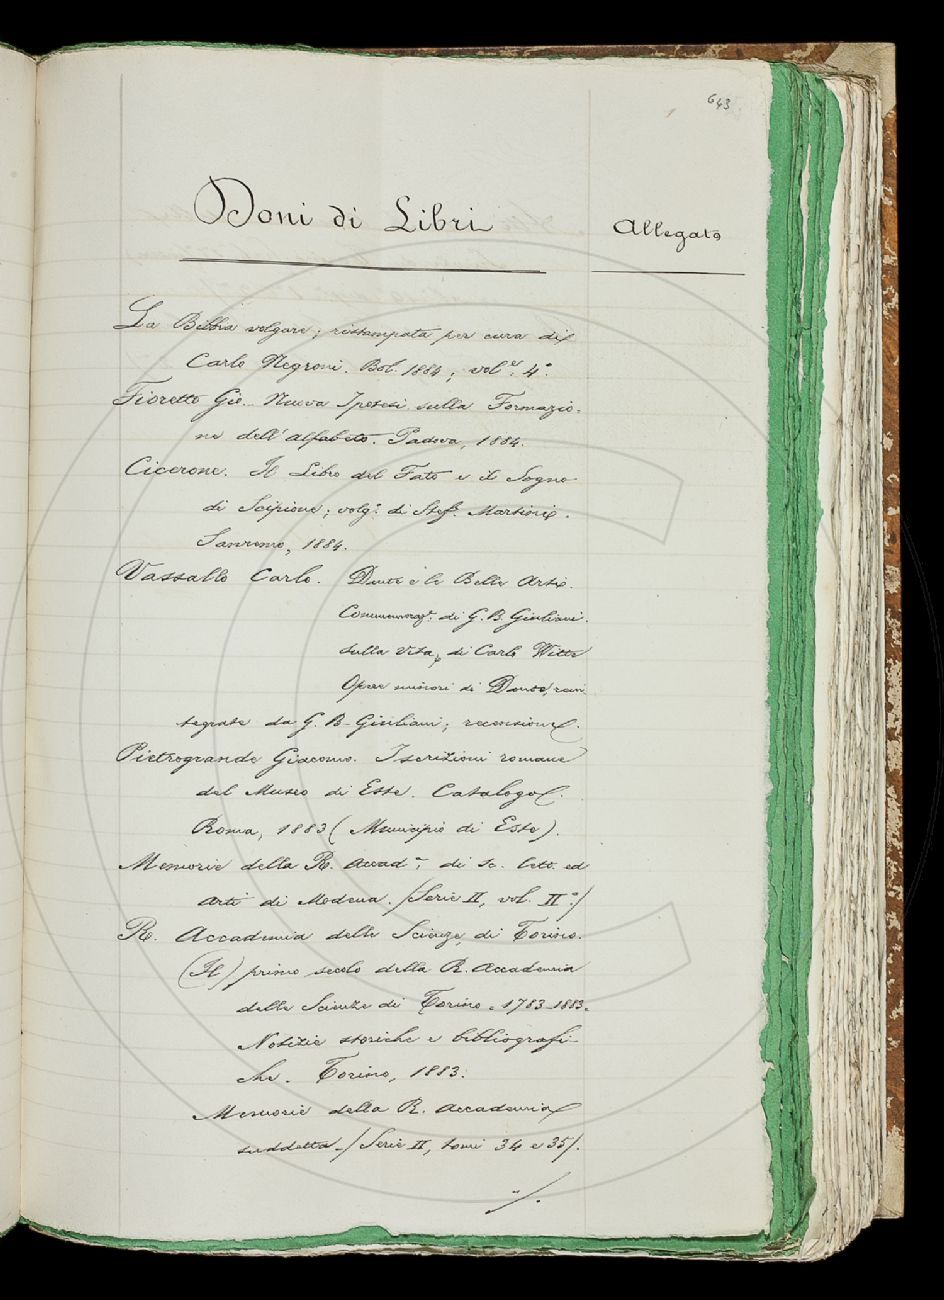 643
Doni di Libri
Allegato
La Bibbia volgare; ristampata per cura di
Carlo Negroni. Bol. 1884; vol.e 4.°
Fioretto Gio. Nuova Ipotesi sulla Formazio-
ne dell'alfabeto. Padova, 1884.
Cicerone. Il Libro del Fato e il Sogno
di Scipione; volg.e di Stef. Martini.
Sanremo, 1884.
Vassallo Carlo. Dante e le Belle Arti.
Commemoraz.e di G. B. Giuliani.
sulla vita di Carlo Witte
Opere minori di Dante, rein
tegrate da G B Giuliani; recensione.
Pietrogrande Giacomo. Iscrizioni romane
del Museo di Este. Catalogo.
Roma, 1883 (Municipio di Este).
Memorie della R. Accad.a di Sc. lett. ed
Arti di Modena. /Serie II, vol. II.°/
R. Accademia delle Scienze di Torino.
(Il) primo secolo della R. Accademia
delle Scienze di Torino. 1783-1883.
Notizie storiche e bibliografi-
che. Torino, 1883.
Memorie della R. Accademia
suddetta. /Serie II, tomi 34 e 35/.
./.